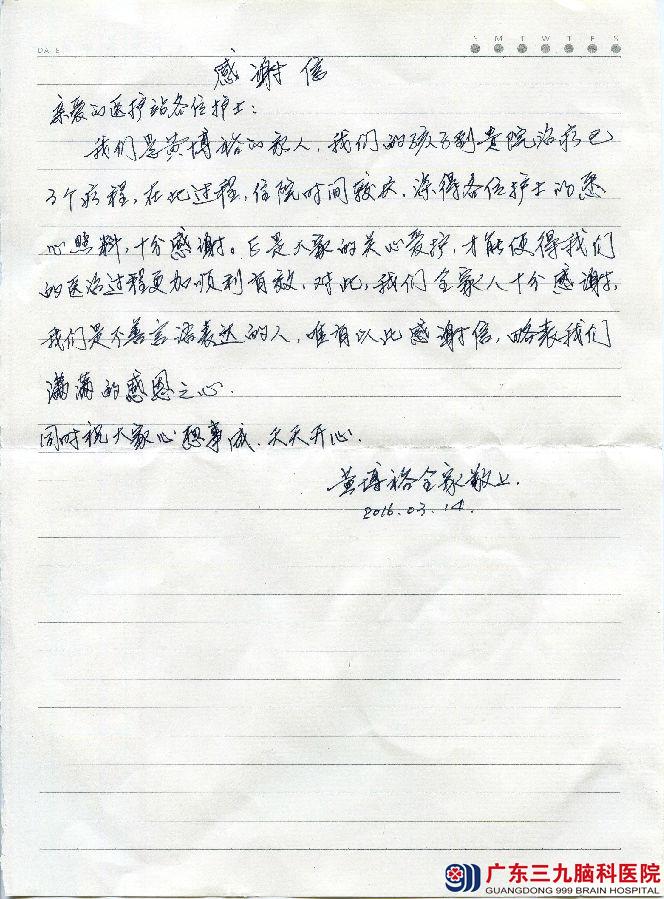 DATE
S M T W T F S
感谢信
亲爱的医护站各位护士：
我们是黄博裕的家人，我们的孩子到贵院治疗已
3个疗程，在此过程，住院时间较长，深得各位护士的悉
心照料，十分感谢。正是大家的关心爱护，才能使得我们
的医治过程更加顺利有效，对此，我们全家人十分感谢，
我们是不善言语表达的人，唯有以此感谢信，略表我们
满满的感恩之心.
同时祝大家心想事成、天天开心.
黄博裕全家敬上.
2016.03.14.
广东三九脑科医院
GUANGDONG 999 BRAIN HOSPITAL